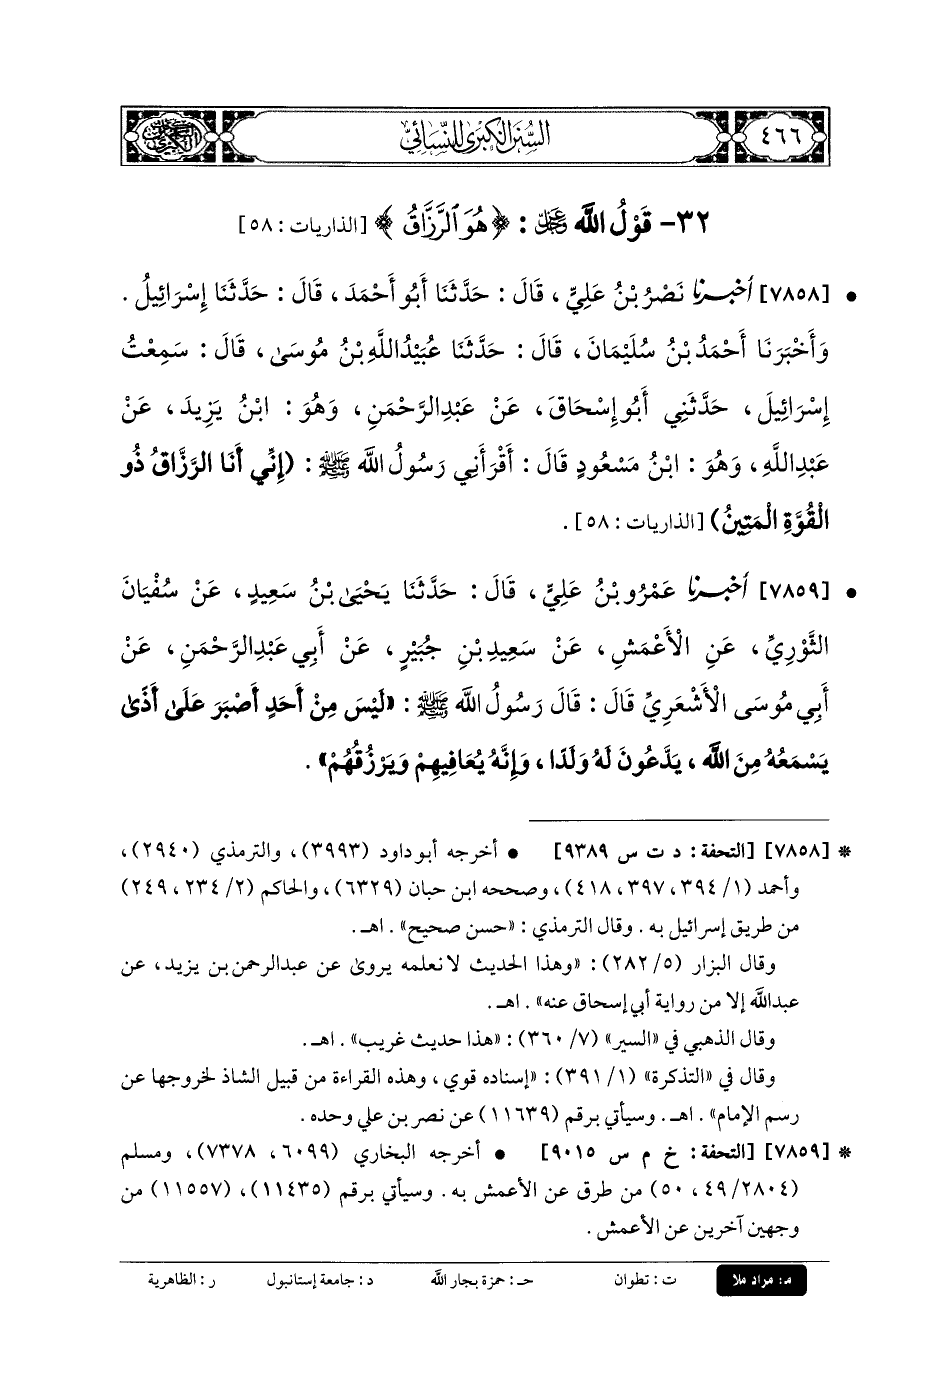 ٤٦٦
السُّنَنُ الكُبْرَى لِلنَّسَائِيِّ
٣٢- قَوْلُ اللَّه ﷿ : ﴿ هُوَ ٱلرَّزَّاقُ ﴾ [الذاريات : ٥٨]
• [٧٨٥٨] أخبرنا نَصْرُ بْنُ عَلِيٍّ ، قَالَ : حَدَّثَنَا أَبُو أَحْمَدَ ، قَالَ : حَدَّثَنَا إِسْرَائِيلُ .
وَأَخْبَرَنَا أَحْمَدُ بْنُ سُلَيْمَانَ ، قَالَ : حَدَّثَنَا عُبَيْدُاللَّهِ بْنُ مُوسَى ، قَالَ : سَمِعْتُ
إِسْرَائِيلَ ، حَدَّثَنِي أَبُو إِسْحَاقَ ، عَنْ عَبْدِالرَّحْمَنِ ، وَهُوَ : ابْنُ يَزِيدَ ، عَنْ
عَبْدِاللَّهِ ، وَهُوَ : ابْنُ مَسْعُودٍ قَالَ : أَقْرَأَنِي رَسُولُ اللَّه ﷺ : (إِنِّي أَنَا الرَّزَّاقُ ذُو
الْقُوَّةِ الْمَتِينُ) [الذاريات : ٥٨] .
• [٧٨٥٩] أخبرنا عَمْرُو بْنُ عَلِيٍّ ، قَالَ : حَدَّثَنَا يَحْيَى بْنُ سَعِيدٍ ، عَنْ سُفْيَانَ
الثَّوْرِيِّ ، عَنِ الْأَعْمَشِ ، عَنْ سَعِيدِ بْنِ جُبَيْرٍ ، عَنْ أَبِي عَبْدِالرَّحْمَنِ ، عَنْ
أَبِي مُوسَى الْأَشْعَرِيِّ قَالَ : قَالَ رَسُولُ اللَّه ﷺ : «لَيْسَ مِنْ أَحَدٍ أَصْبَرَ عَلَى أَذًى
يَسْمَعُهُ مِنَ اللَّه ، يَدَّعُونَ لَهُ وَلَدًا ، وَإِنَّهُ يُعَافِيهِمْ وَيَرْزُقُهُمْ» .
* [٧٨٥٨] [التحفة : د ت س ٩٣٨٩] • أخرجه أبو داود (٣٩٩٣) ، والترمذي (٢٩٤٠) ،
وأحمد (١/ ٣٩٤ ، ٣٩٧ ، ٤١٨) ، وصححه ابن حبان (٦٣٢٩) ، والحاكم (٢/ ٢٣٤ ، ٢٤٩)
من طريق إسرائيل به . وقال الترمذي : «حسن صحيح» . اهـ .
وقال البزار (٥/ ٢٨٢) : «وهذا الحديث لا نعلمه يروى عن عبدالرحمن بن يزيد ، عن
عبدالله إلا من رواية أبي إسحاق عنه» . اهـ .
وقال الذهبي في «السير» (٧/ ٣٦٠) : «هذا حديث غريب» . اهـ .
وقال في «التذكرة» (١/ ٣٩١) : «إسناده قوي ، وهذه القراءة من قبيل الشاذ لخروجها عن
رسم الإمام» . اهـ . وسيأتي برقم (١١٦٣٩) عن نصر بن علي وحده .
* [٧٨٥٩] [التحفة : خ م س ٩٠١٥] • أخرجه البخاري (٦٠٩٩ ، ٧٣٧٨) ، ومسلم
(٢٨٠٤/ ٤٩ ، ٥٠) من طرق عن الأعمش به . وسيأتي برقم (١١٤٣٥) ، (١١٥٥٧) من
وجهين آخرين عن الأعمش .
م : مراد ملا ت : تطوان حـ : حمزة بجار الله د : جامعة إستانبول ر : الظاهرية